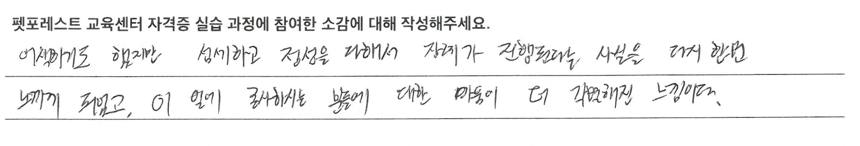 펫포레스트 교육센터 자격증 실습 과정에 참여한 소감에 대해 작성해주세요.
어색하기도 했지만 섬세하고 정성을 다해서 장례가 진행된다는 사실을 다시 한번
느끼게 되었고, 이 일에 종사하시는 분들에 대한 마음이 더 각별해진 느낌이다.